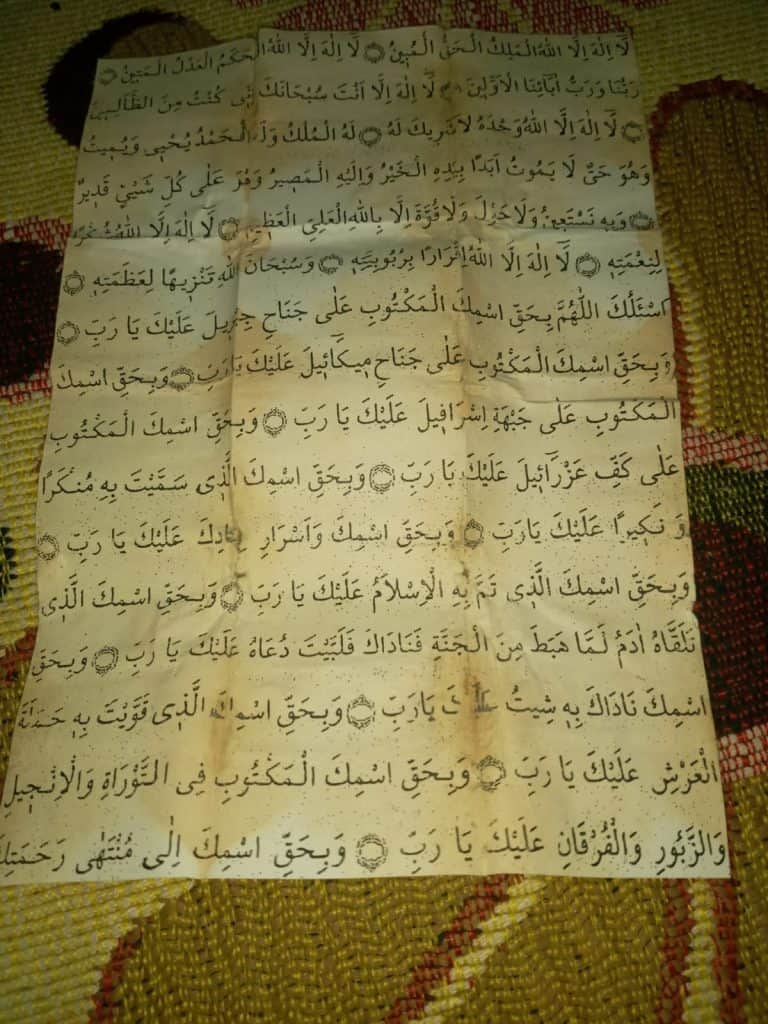 لَا اِلٰهَ اِلَّا اللهُ الْمَلِكُ الْحَقُّ الْمُبِينُ ۞ لَا اِلٰهَ اِلَّا اللهُ الْحَكَمُ الْعَدْلُ الْمَتِينُ ۞
رَبُّنَا وَرَبُّ اٰبَآئِنَا الْاَوَّلِينَ ۞ لَا اِلٰهَ اِلَّا اَنْتَ سُبْحَانَكَ اِنِّى كُنْتُ مِنَ الظَّالِمِينَ
۞ لَا اِلٰهَ اِلَّا اللهُ وَحْدَهُ لَا شَرِيكَ لَهُ ۞ لَهُ الْمُلْكُ وَلَهُ الْحَمْدُ يُحْيِى وَيُمِيتُ
وَهُوَ حَىٌّ لَا يَمُوتُ اَبَدًا بِيَدِهِ الْخَيْرُ وَاِلَيْهِ الْمَصِيرُ وَهُوَ عَلٰى كُلِّ شَيْئٍ قَدِيرٌ
۞ وَبِهِ نَسْتَعِينُ وَلَا حَوْلَ وَلَا قُوَّةَ اِلَّا بِاللهِ الْعَلِىِّ الْعَظِيمِ ۞ لَا اِلٰهَ اِلَّا اللهُ شُكْرًا
لِنِعْمَتِهِ ۞ لَا اِلٰهَ اِلَّا اللهُ اِقْرَارًا بِرُبُوبِيَّتِهِ ۞ وَسُبْحَانَ اللهِ تَنْزِيهًا لِعَظَمَتِهِ ۞
اَسْئَلُكَ اللّٰهُمَّ بِحَقِّ اسْمِكَ الْمَكْتُوبِ عَلٰى جَنَاحِ جِبْرِيلَ عَلَيْكَ يَا رَبِّ ۞
وَبِحَقِّ اسْمِكَ الْمَكْتُوبِ عَلٰى جَنَاحِ مِيكَآئِيلَ عَلَيْكَ يَارَبِّ ۞ وَبِحَقِّ اسْمِكَ
الْمَكْتُوبِ عَلٰى جَبْهَةِ اِسْرَافِيلَ عَلَيْكَ يَا رَبِّ ۞ وَبِحَقِّ اسْمِكَ الْمَكْتُوبِ
عَلٰى كَفِّ عَزْرَآئِيلَ عَلَيْكَ يَا رَبِّ ۞ وَبِحَقِّ اسْمِكَ الَّذِى سَمَّيْتَ بِهِ مُنْكَرًا
وَ نَكِيرًا عَلَيْكَ يَارَبِّ ۞ وَبِحَقِّ اسْمِكَ وَاَسْرَارِ عِبَادِكَ عَلَيْكَ يَا رَبِّ ۞
وَبِحَقِّ اسْمِكَ الَّذِى تَمَّ بِهِ الْاِسْلَامُ عَلَيْكَ يَا رَبِّ ۞ وَبِحَقِّ اسْمِكَ الَّذِى
تَلَقَّاهُ اٰدَمُ لَمَّا هَبَطَ مِنَ الْجَنَّةِ فَنَادَاكَ فَلَبَّيْتَ دُعَاهُ عَلَيْكَ يَا رَبِّ ۞ وَبِحَقِّ
اسْمِكَ نَادَاكَ بِهِ شِيثُ عَلَيْكَ يَارَبِّ ۞ وَبِحَقِّ اسْمِكَ الَّذِى قَوَّيْتَ بِهِ حَمَلَةَ
الْعَرْشِ عَلَيْكَ يَا رَبِّ ۞ وَبِحَقِّ اسْمِكَ الْمَكْتُوبِ فِى التَّوْرَاةِ وَالْاِنْجِيلِ
وَالزَّبُورِ وَالْفُرْقَانِ عَلَيْكَ يَا رَبِّ ۞ وَبِحَقِّ اسْمِكَ اِلٰى مُنْتَهٰى رَحْمَتِكَ